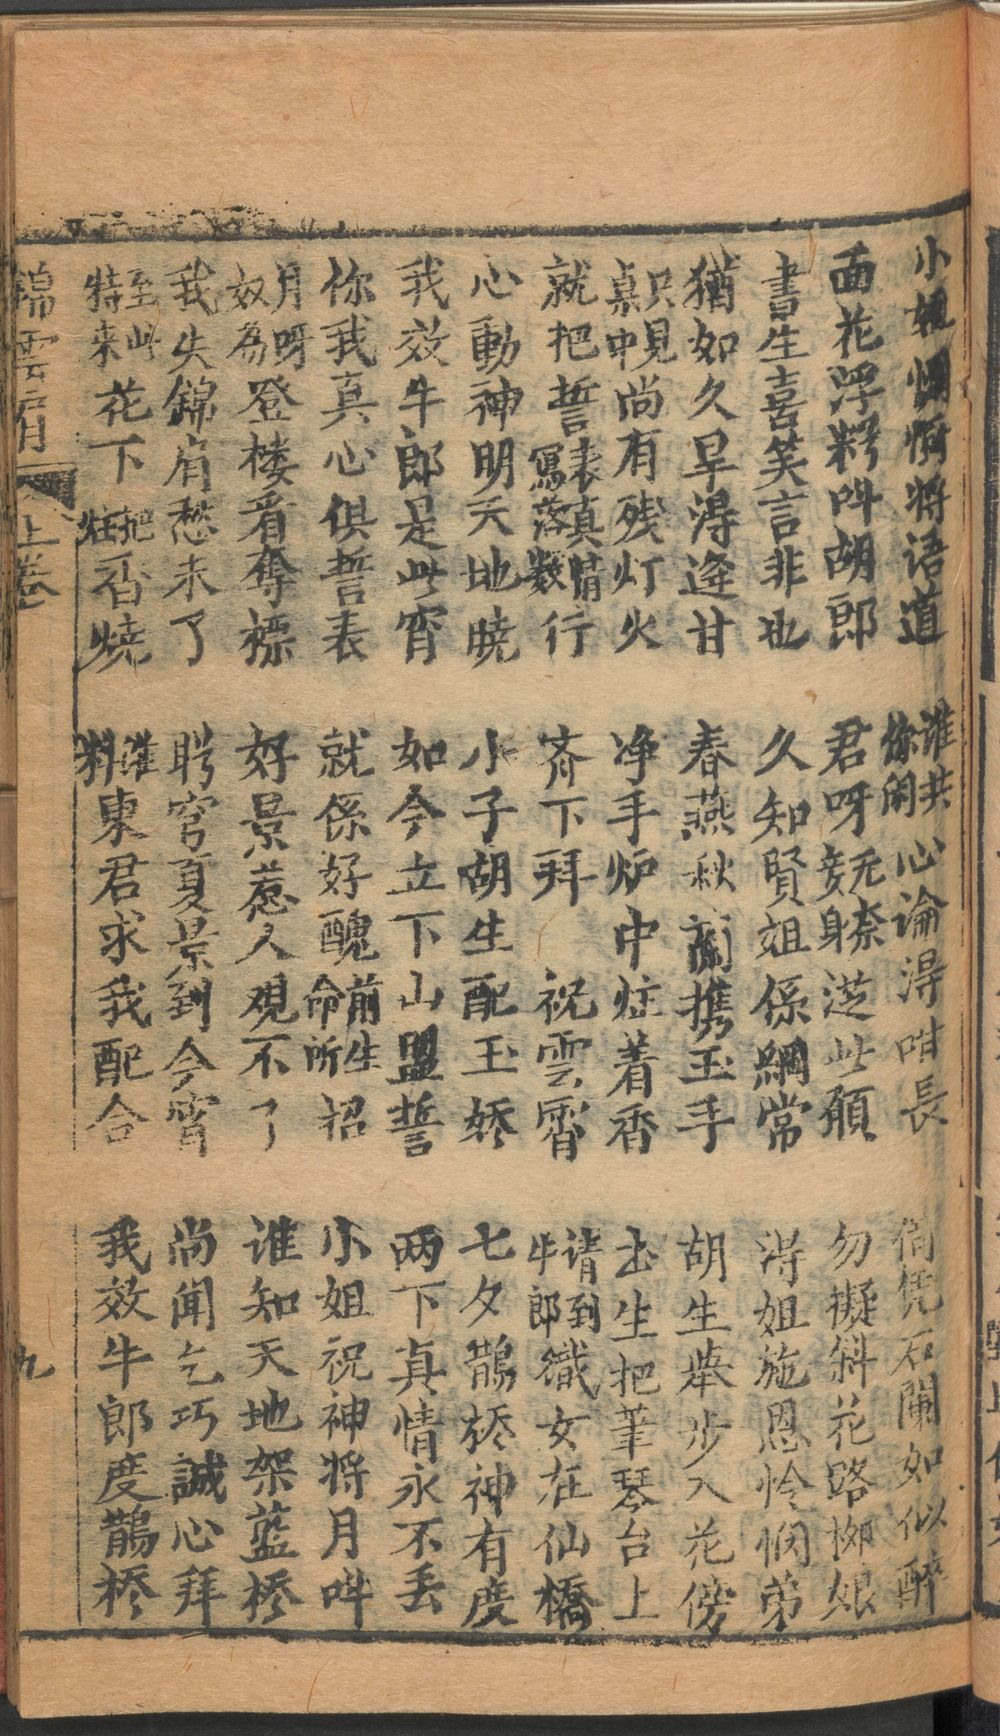 小姐惆悵将语道　谁共你闲心論淂咁長　倘凭石闌如似醉
面花浮粉呌胡郎　君呀竟无身奈送此願　勿擬斜花路柳娘
書生喜笑言非也　久知賢姐係綱常　淂姐施恩怜悯弟
猶如久旱淂逢甘　春燕秋蘭携玉手　胡生举步入花傍
只見桌中尚有残灯火　净手炉中炷着香　玉生把筆琴台上
就把誓表真情寫落数行　齐下拜　祝雲霄　请到牛郎織女在仙橋
心動神明天地暁　小子胡生配玉娇　七夕鵲桥神有度
我效牛郎是此宵　如今立下山盟誓　两下真情永不丢
你我真心俱誓表　就係好醜前生命所招　小姐祝神将月呌
月呀奴為登楼看奪標　好景惹人观不了　谁知天地架藍桥
我失錦肩愁未了　聍穹夏景到今宵　尚闻乞巧誠心拜
至此特来花下把炷香燒　谁料東君求我配合　我效牛郎度鵲桥
錦雲肩　上卷　九